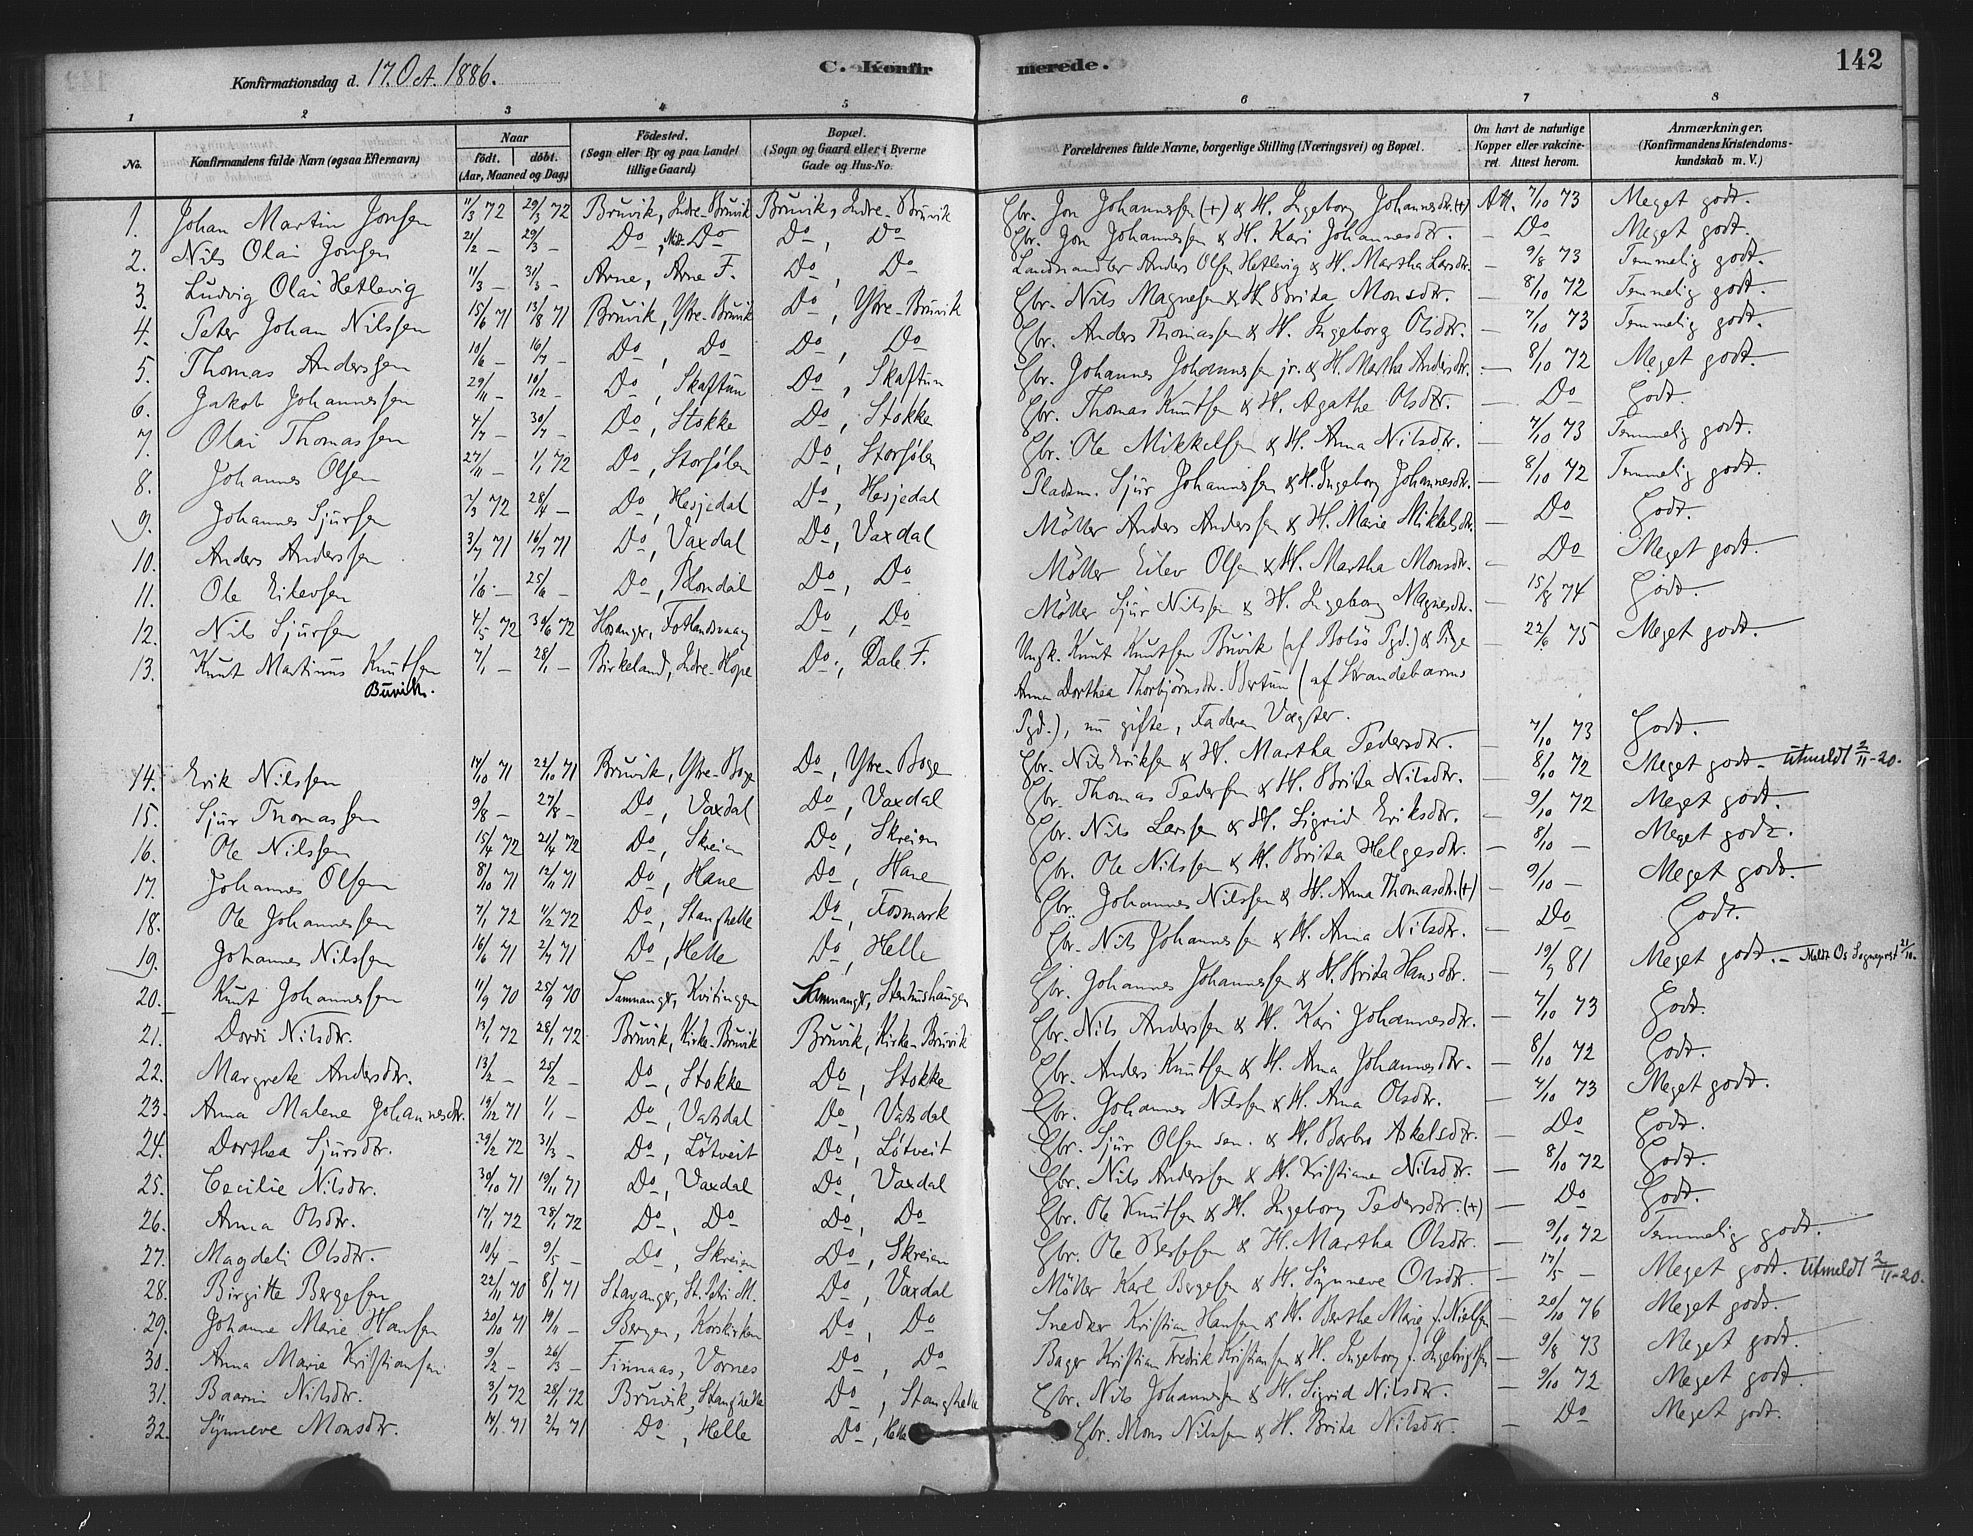 Konfirmationsdag d. 17. Oct. 1886. C. Konfirmerede. 142
1 2 3 4 5 6 7 8
No. | Konfirmandens fulde Navn (ogsaa Efternavn) | Naar født. døbt. (Aar, Maaned og Dag) | Födested. (Sogn eller By og paa Landet tillige Gaard) | Bopæl. (Sogn og Gaard eller i Byerne Gade og Hus-No. | Forældrenes fulde Navne, borgerlige Stilling (Næringsvei) og Bopæl. | Om havt de naturlige Kopper eller vakcineret. Attest herom. | Anmærkninger. (Konfirmandens Kristendomskundskab m. V.)
1. Johan Martin Jonsen 11/3 72 29/3 72 Bruvik, Indre-Bruvik Bruvik, Indre-Bruvik Gbr. Jon Johannessen (+) & H. Ingeborg Johannesdtr. (+) Att. 7/10 73 Meget godt.
2. Nils Olai Jonsen 21/2 — 29/3 — Do, Do Do, Do Gbr. Jon Johannessen & H. Kari Johannesdtr. — Do Meget godt.
3. Ludvig Olai Hetlevig 11/3 — 31/3 — Arne, Arne F. Do, Do Landhandler Anders Olsen Hetlevig & H. Martha Larsdtr. — 9/8 73 Temmelig godt.
4. Peter Johan Nilssen 15/6 71 13/8 71 Bruvik, Ytre-Bruvik Do, Ytre-Bruvik Gbr. Nils Magnesen & H. Brita Monsdtr. — 8/10 72 Temmelig godt.
5. Thomas Anderssen 10/6 — 16/7 — Do, Do Do, Do Gbr. Anders Thomassen & H. Ingeborg Olsdtr. — 7/10 73 Temmelig godt.
6. Jakob Johannessen 29/11 — 10/12 — Do, Skaftun Do, Skaftun Gbr. Johannes Johannessen jr. & H. Martha Andersdtr. — 8/10 72 Meget godt.
7. Olai Thomassen 4/7 — 30/7 — Do, Stokke Do, Stokke Gbr. Thomas Knutsen & H. Agathe Olsdtr. — Do Godt.
8. Johannes Olsen 27/11 — 1/1 72 Do, Storfølen Do, Storfølen Gbr. Ole Mikkelsen & H. Anna Nilsdtr. — 7/10 73 Temmelig godt.
9. Johannes Sjursen 7/3 72 28/4 — Do, Hesjedal Do, Hesjedal Pladsm. Sjur Johannessen & H. Ingeborg Johannesdtr. — 8/10 72 Temmelig godt.
10. Anders Anderssen 3/7 71 16/7 71 Do, Vaxdal Do, Vaxdal Møller Anders Anderssen & H. Marie Mikkelsdtr. — Do Godt.
11. Ole Eilevsen 1/6 — 25/6 — Do, Blomdal Do, Do Møller Eilev Olsen & H. Martha Monsdtr. — Do Meget godt.
12. Nils Sjursen 4/5 72 30/6 72 Hosanger, Fotlandsvaag Do, Do Møller Sjur Nilssen & H. Ingeborg Magnesdtr. — 15/8 74 Godt.
13. Knut Martinus Knutsen Buvik. 7/1 — 28/1 — Birkeland, Indre-Hope Do., Dale F. Ungk. Knut Knutsen Buvik (af Bolsø Pgd.) & Pige — 22/6 75 Meget godt.
Anna Dorthea Thorbjørnsdtr. Bertun (af Strandebarms
Pgd.), nu gifte, Faderen Vægter.
14. Erik Nilssen 14/10 71 22/10 71 Bruvik, Ytre-Boge Do, Ytre-Boge Gbr. Nils Eriksen & H. Martha Pedersdtr. — 7/10 73 Godt.
15. Sjur Thomassen 9/8 — 27/8 — Do, Vaxdal Do, Vaxdal Gbr. Thomas Pedersen & H. Brita Nilsdtr. — 8/10 72 Meget godt. — Utmeldt 2/11-20.
16. Ole Nilssen 15/4 72 21/4 72 Do, Skreien Do, Skreien Gbr. Nils Larssen & H. Sigrid Eriksdtr. — 9/10 72 Meget godt.
17. Johannes Olsen 8/10 71 12/11 71 Do, Hane Do, Hane Gbr. Ole Nilssen & H. Brita Helgesdtr. — 8/10 — Meget godt.
18. Ole Johannessen 7/1 72 11/2 72 Do, Stanghelle Do, Fosmark Gbr. Johannes Nilssen & H. Anna Thomasdtr. (+) — 9/10 — Meget godt.
19. Johannes Nilssen 16/6 71 2/7 71 Do, Helle Do, Helle Gbr. Nils Johannessen & H. Anna Nilsdtr. — Do Godt.
20. Knut Johannessen 11/9 70 25/9 70 Samnanger, Kvitingen Samnanger, Stenhushaugen Gbr. Johannes Johannessen & H. Brita Hansdtr. — 19/9 81 Meget godt. — Meldt Os Sogneprst 21/10.
21. Dordi Nilsdtr. 13/1 72 28/1 72 Bruvik, Kirke-Bruvik Bruvik, Kirke-Bruvik Gbr. Nils Anderssen & H. Kari Johannesdtr. — 7/10 73 Godt.
22. Margrete Andersdtr. 13/2 — 25/2 — Do, Stokke Do, Stokke Gbr. Anders Knutsen & H. Anna Johannesdtr. — 8/10 72 Godt.
23. Anna Malene Johannesdtr. 19/12 71 1/1 — Do, Vatsdal Do, Vatsdal Gbr. Johannes Nilssen & H. Anna Olsdtr. — 7/10 73 Meget godt.
24. Dorthea Sjursdtr. 29/2 72 31/3 — Do, Løtveit Do, Løtveit Gbr. Sjur Olsen sen. & H. Barbro Askelsdtr. — Do Godt.
25. Cecilie Nilsdtr. 30/10 71 19/11 71 Do, Vaxdal Do, Vaxdal Gbr. Nils Anderssen & H. Kristiane Nilsdtr. — 8/10 72 Godt.
26. Anna Olsdtr. 17/1 72 28/1 72 Do, Do Do, Do Gbr. Ole Knutsen & H. Ingeborg Pedersdtr. (+) — Do Godt.
27. Magdeli Olsdtr. 10/4 — 9/5 — Do, Skreien Do, Skreien Gbr. Ole Bergesen & H. Martha Olsdtr. — 9/10 72 Temmelig godt.
28. Birgitte Bergesen 22/11 70 8/1 71 Stavanger, St. Petri M. Do, Vaxdal Møller Karl Bergesen & H. Synneve Olsdtr. — 17/5 — Meget godt. Utmeldt 2/11-20.
29. Johanne Marie Hansen 20/10 71 19/11 — Bergen, Korskirken Do, Do Snedker Kristian Hansen & H. Berthe Marie f. Nielsen — 20/10 76 Meget godt.
30. Anna Marie Kristiansen 9/2 — 26/3 — Finnaas, Vornes Do, Do Bager Kristian Fredrik Kristiansen & H. Ingeborg f. Ingebrigtsen — 9/8 73 Meget godt.
31. Baarni Nilsdtr. 3/1 72 28/1 72 Bruvik, Stanghelle Do, Stanghelle Gbr. Nils Johannessen & H. Sigrid Nilsdtr. — 9/10 72 Meget godt.
32. Synneve Monsdtr. 14/1 71 2/7 71 Do, Helle Do, Helle Gbr. Mons Nilssen & H. Brita Nilsdtr. — Do Meget godt.